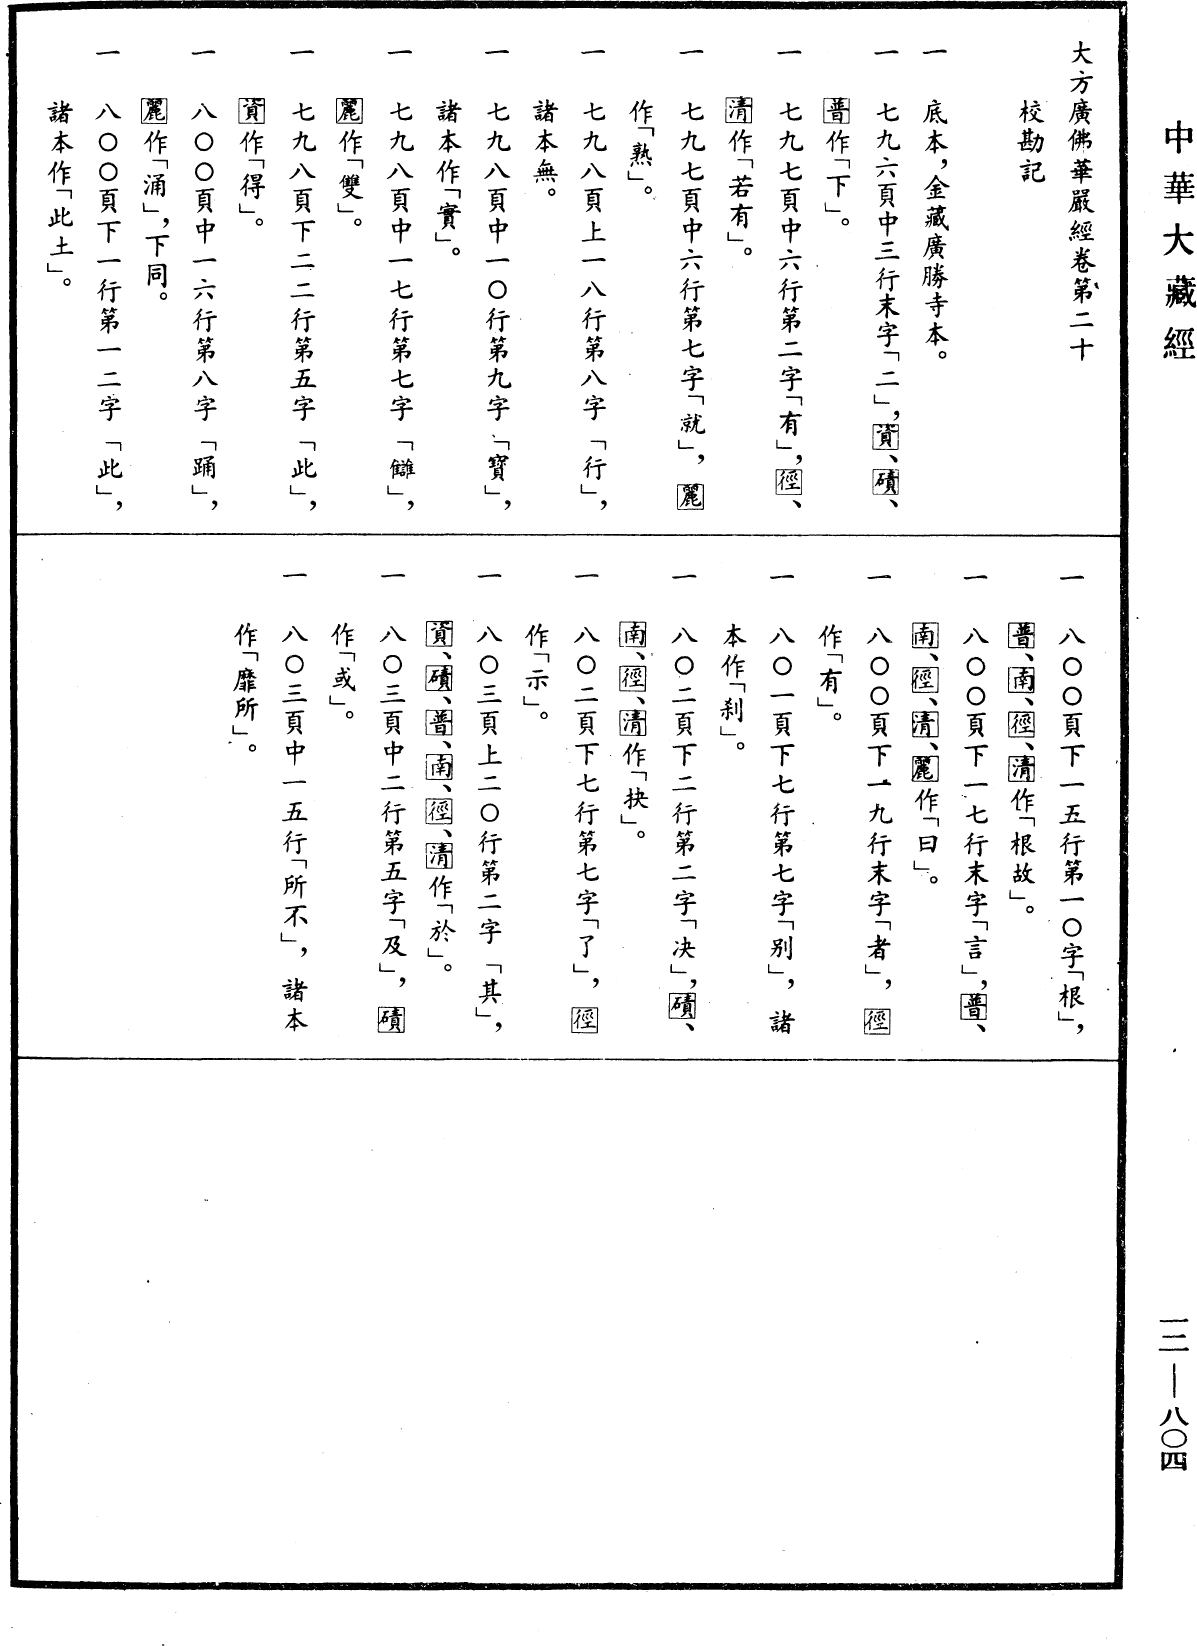 中華大藏經
大方廣佛華嚴經卷第二十
校勘記
一　底本，金藏廣勝寺本。
一　七九六頁中三行末字「二」，資、磧、
普作「下」。
一　七九七頁中六行第二字「有」，徑、
清作「若有」。
一　七九七頁中六行第七字「就」，麗
作「熟」。
一　七九八頁上一八行第八字「行」，
諸本無。
一　七九八頁中一〇行第九字「寶」，
諸本作「實」。
一　七九八頁中一七行第七字「讎」，
麗作「雙」。
一　七九八頁下二二行第五字「此」，
資作「得」。
一　八〇〇頁中一六行第八字「踊」，
麗作「涌」，下同。
一　八〇〇頁下一行第一二字「此」，
諸本作「此土」。
一　八〇〇頁下一五行第一〇字「根」，
普、南、徑、清作「根故」。
一　八〇〇頁下一七行末字「言」，普、
南、徑、清、麗作「曰」。
一　八〇〇頁下一九行末字「者」，徑
作「有」。
一　八〇一頁下七行第七字「別」，諸
本作「刹」。
一　八〇二頁下二行第二字「决」，磧、
南、徑、清作「抉」。
一　八〇二頁下七行第七字「了」，徑
作「示」。
一　八〇三頁上二〇行第二字「其」，
資、磧、普、南、徑、清作「於」。
一　八〇三頁中二行第五字「及」，磧
作「或」。
一　八〇三頁中一五行「所不」，諸本
作「靡所」。
一二—八〇四